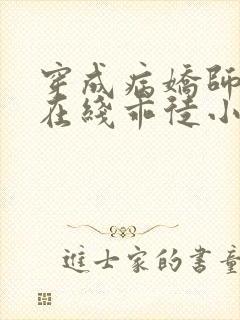 穿成病嬌師
在綫乖徒小
進士家的書童